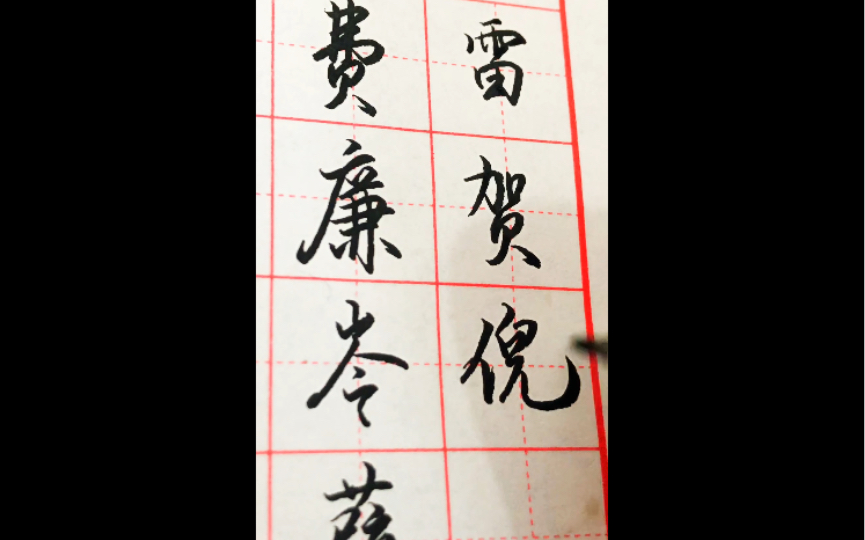 费廉岑
雷贺倪